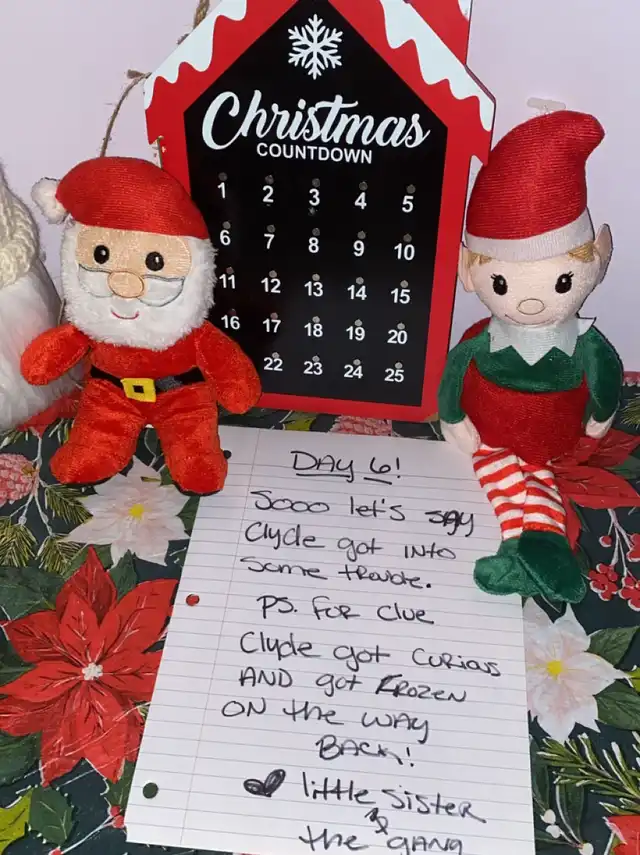 Christmas
COUNTDOWN
1 2 3 4 5
6 7 8 9 10
11 12 13 14 15
16 17 18 19 20
22 23 24 25
DAY 6!
Sooo let's say
Clyde got into
some trouble.
PS. For clue
Clyde got curious
AND got FROZEN
ON the way
BACK!
little sister
&
the gang